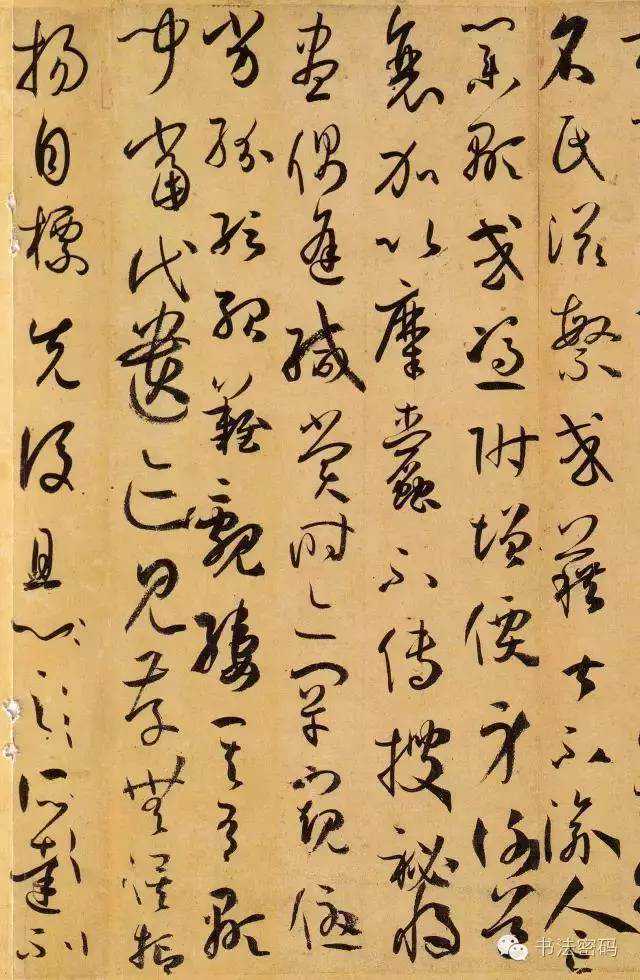 名氏滋繁或藉甚不渝人亡
業顯或憑附增價身謝道
衰加以糜蠹不傳搜秘將
盡偶逢緘賞時亦罕窺優
劣紛紜殆難覼縷其有顯
聞當代遺跡見存無俟抑
揚自標先後且心之所達不
书法密码